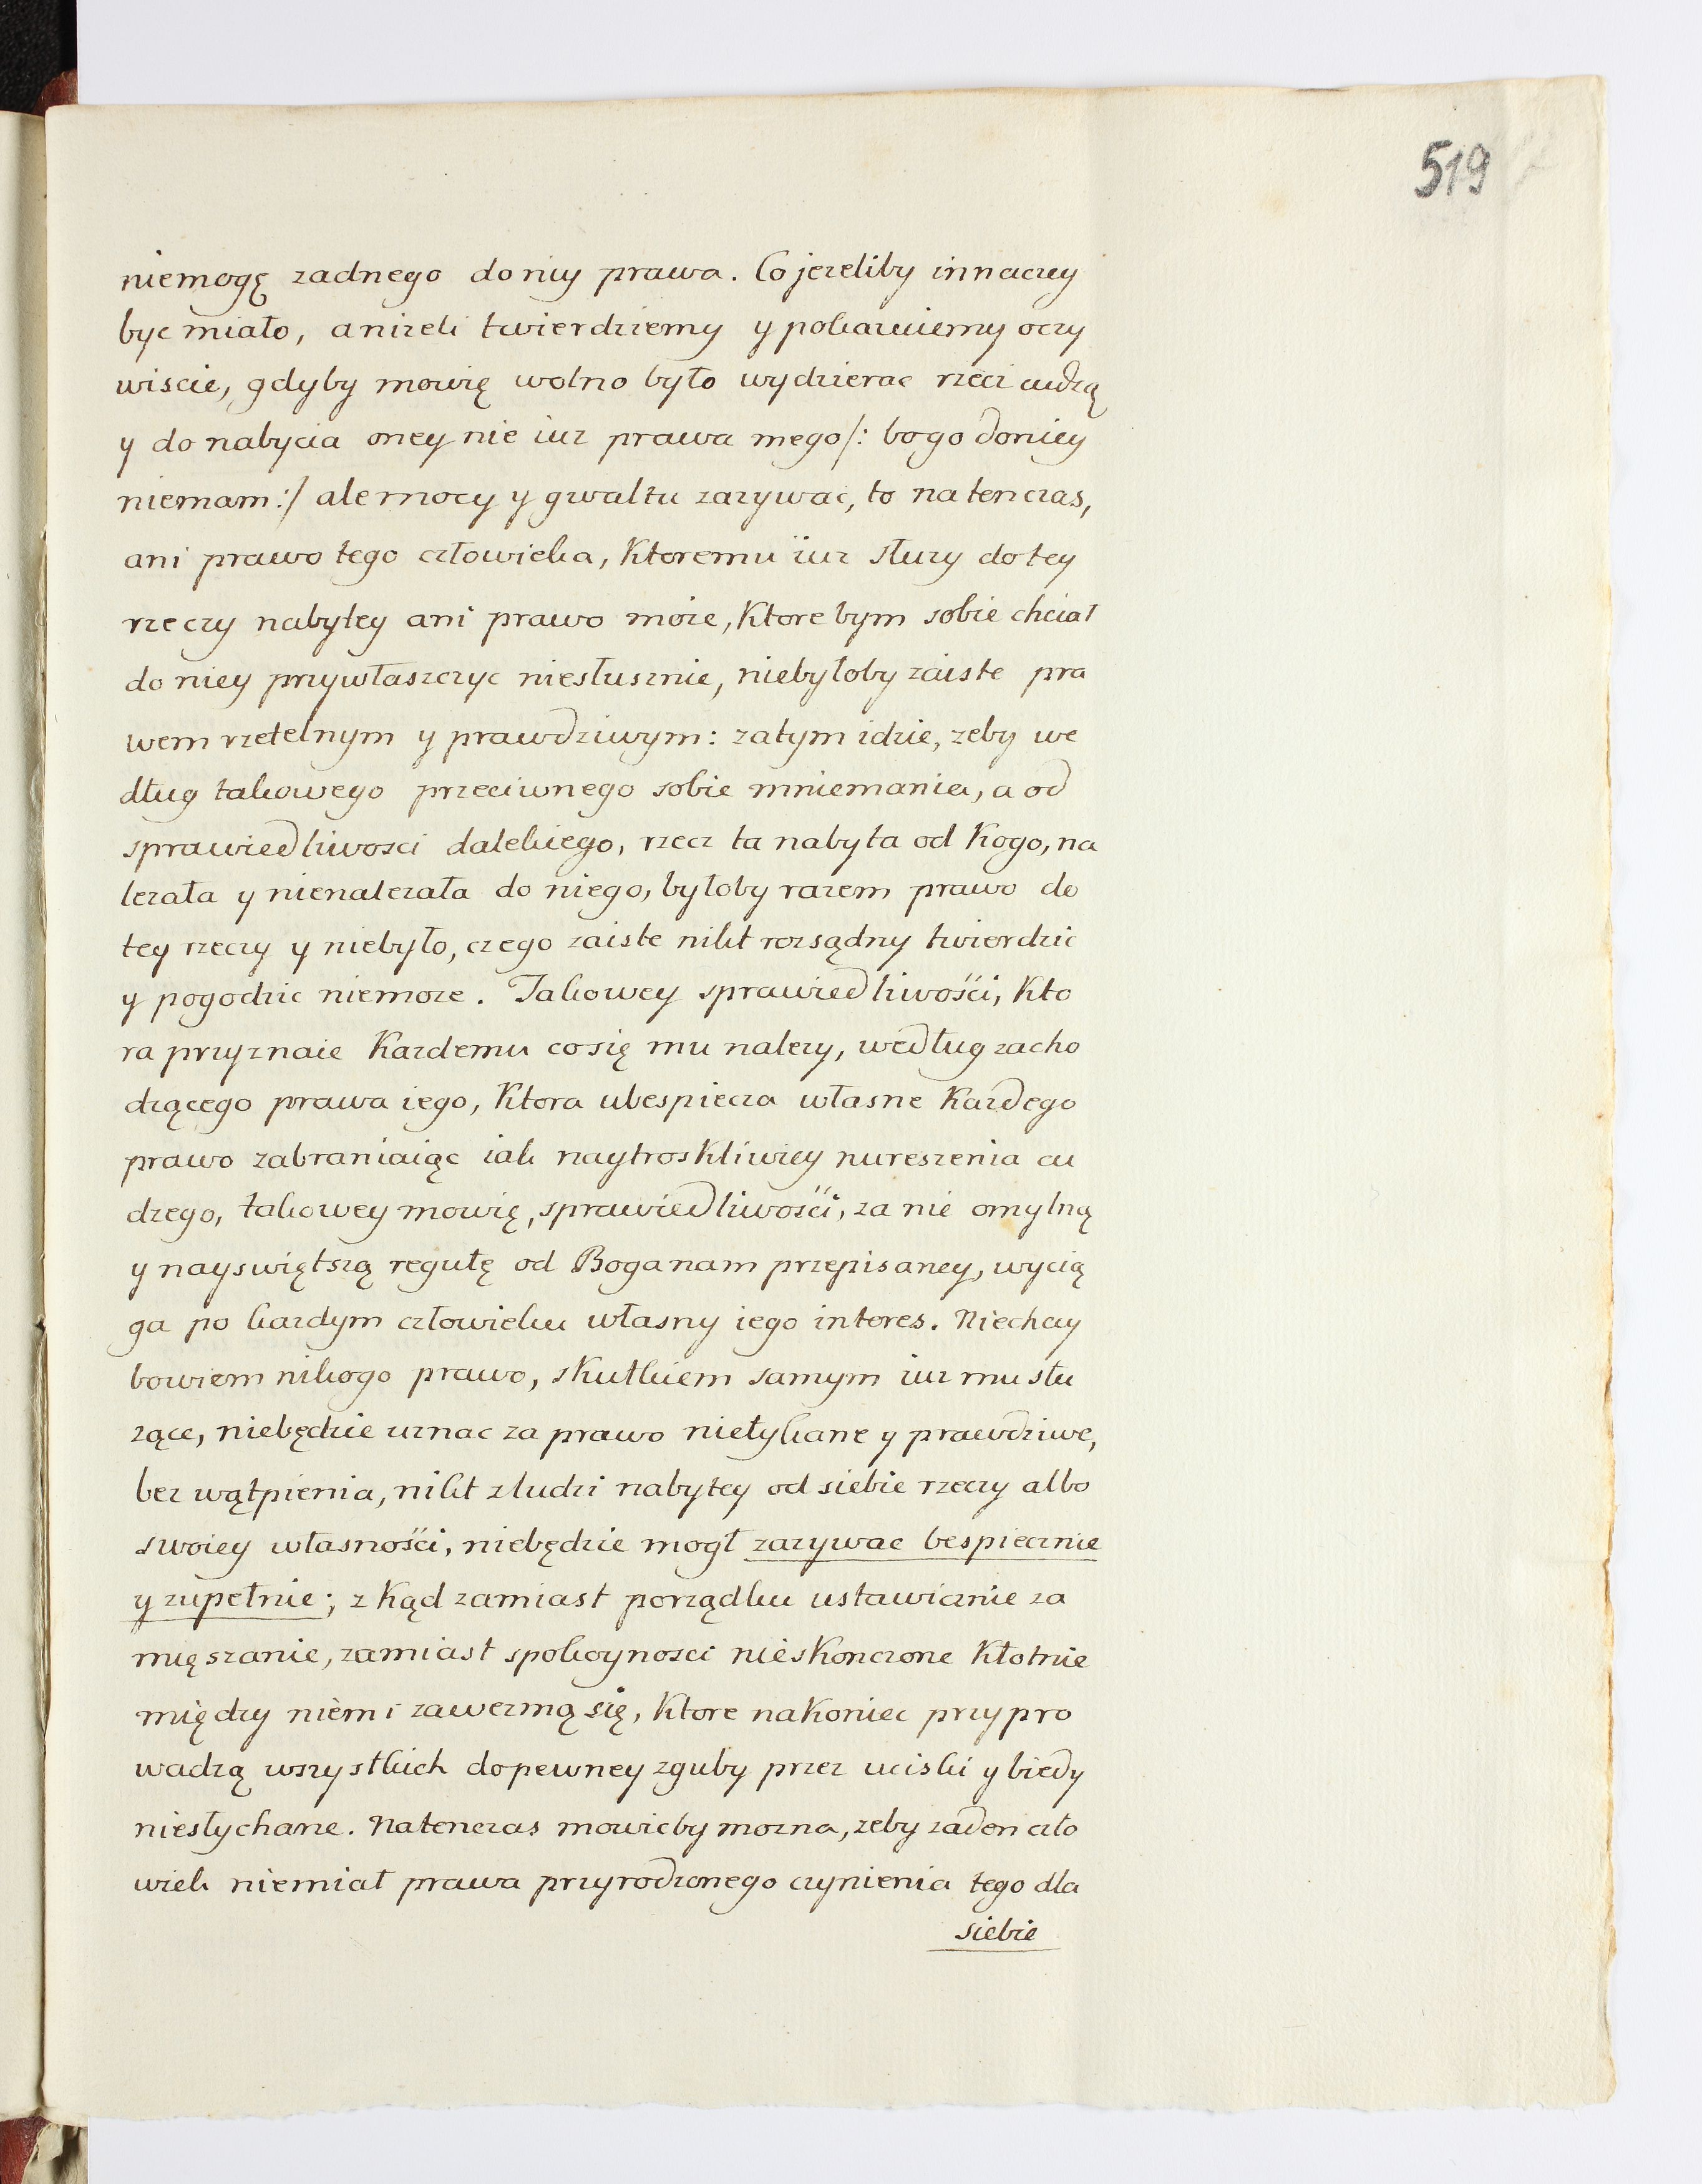 519
niemogę zadnego do niy prawa. Co jezeliby innaczey
byc miało, anizeli twierdziemy y pokazuiemy oczy
wiscie, gdyby mowię wolno było wydzierac rzecz cudzą
y do nabycia oney nie iuz prawa mego /: bo go do niey
niemam :/ ale mocy y gwałtu zazywac, to natenczas,
ani prawo tego człowieka, Ktoremu iuz słuzy do tey
rzeczy nabytey ani prawo moie, Ktorebym sobie chciał
do niey przywłaszczyc niesłusznie, niebyłoby zaiste pra
wem rzetelnym y prawdziwym: zatym idzie, zeby we
dług takowego przeciwnego sobie mniemania, a od
sprawiedliwosci dalekiego, rzecz ta nabyta od Kogo, na
lezała y nienalezała do niego, byłoby razem prawo do
tey rzeczy y niebyło, czego zaiste nikt rozsądny twierdzic
y pogodzic niemoze. Takowey sprawiedliwości, Kto
ra przyznaie Kazdemu co się mu nalezy, według zacho
dzącego prawa iego, Ktora ubespiecza własne Kazdego
prawo zabraniaiąc iak naytroskliwiey nureszenia cu
dzego, takowey mowię, sprawiedliwości, za nie omylną
y nayswiętszą regułę od Boga nam przepisaney, wycią
ga po kazdym człowieku własny iego interes. Niechay
bowiem nikogo prawo, skutkiem samym iuz mu słu
zące, niebędzie uznac za prawo nietykane y prawdziwe,
bez wątpienia, nikt z ludzi nabytey od siebie rzeczy albo
swoiey własności, niebędzie mogł zazywac bespiecznie
y zupełnie; z Kąd zamiast porządku ustawicznie za
mięszanie, zamiast spokoynosci nieskonczone Kłotnie
między niemi zawezmą się, Ktore nakoniec przypro
wadzą wszystkich do pewney zguby przez uciski y biedy
niesłychane. Natenczas mowicby mozna, zeby zaden czło
wiek niemiał prawa przyrodzonego czynienia tego dla
siebie